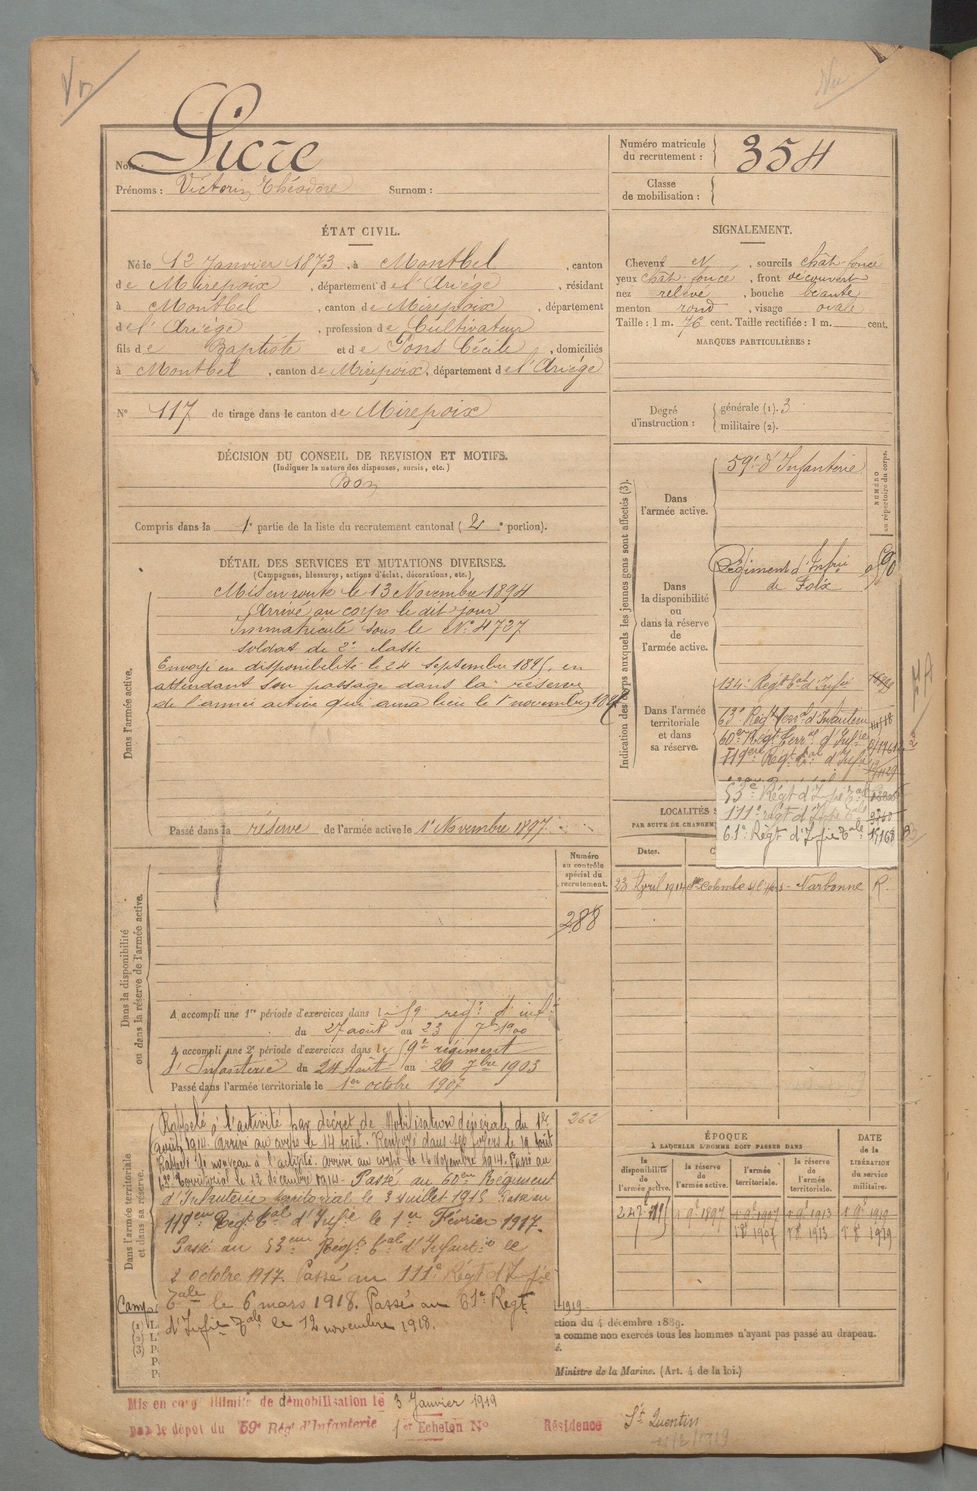 Nom : Sicre
Prénoms : Victorin Théodore Surnom :
Numéro matricule du recrutement : 354
Classe de mobilisation :
ÉTAT CIVIL.
Né le 12 Janvier 1873, à Montbel, canton
de Mirepoix, département de l'Ariège, résidant
à Montbel, canton de Mirepoix, département
de l'Ariège, profession de Cultivateur
fils de Baptiste et de Pons Cécile, domiciliés
à Montbel, canton de Mirepoix, département de l'Ariège
N° 117 de tirage dans le canton de Mirepoix
DÉCISION DU CONSEIL DE REVISION ET MOTIFS.
(Indiquer la nature des dispenses, sursis, etc.)
Bon
Compris dans la 1e partie de la liste du recrutement cantonal (2e portion).
SIGNALEMENT.
Cheveux N, sourcils chât. foncé
yeux chât. foncé, front découvert
nez relevé, bouche béante
menton rond, visage ovale
Taille : 1 m. 76 cent. Taille rectifiée : 1 m. cent.
MARQUES PARTICULIÈRES :
Degré d'instruction : générale (1). 3
militaire (2).
DÉTAIL DES SERVICES ET MUTATIONS DIVERSES.
(Campagnes, blessures, actions d'éclat, décorations, etc.)
Dans l'armée active.
Mis en route le 13 Novembre 1894
Arrivé au corps le dit jour
Immatriculé sous le N° 4727
soldat de 2e classe
Envoyé en disponibilité le 24 septembre 1895, en
attendant son passage dans la réserve
de l'armée active qui aura lieu le 1er novembre 1897
Passé dans la réserve de l'armée active le 1er Novembre 1897
Indication des corps auxquels les jeunes gens sont affectés (3).
NUMÉRO au répertoire du corps.
Dans l'armée active.
59e d'Infanterie
Dans la disponibilité ou dans la réserve de l'armée active.
Régiment d'Infrie
de Foix
Dans l'armée territoriale et dans sa réserve.
134e Régt tal d'Infie
63e Régt terral d'Infanterie
60e Régt terral d'Infie
119ème Régt tal d'Infie
53e Régt d'Infie tale
111e régt d'Infie tale
61e Régt d'Infie tale 15168
LOCALITÉS S
PAR SUITE DE CHANGEM
Dates.
23 Avril 1914 Ste Colombe s/l'Hers - Narbonne R.
Dans la disponibilité ou dans la réserve de l'armée active.
Numéro au contrôle spécial du recrutement.
288
A accompli une 1re période d'exercices dans le 59 régt d'inf.
du 27 août au 23 7bre 1900
A accompli une 2e période d'exercices dans le 59e régiment
d'Infanterie du 24 Août au 20 7bre 1903
Passé dans l'armée territoriale le 1er octobre 1907
Dans l'armée territoriale et dans sa réserve.
262
Rappelé à l'activité par décret de Mobilisation générale du 1er
août 1914. Arrivé au corps le 14 août. Renvoyé dans ses foyers le 19 août
Rappelé de nouveau à l'activité. arrivé au corps le 16 novembre 1914. Passé au
63e territorial le 12 décembre 1914. Passé au 60em Régiment
d'Infanterie territorial le 3 juillet 1915. Passé au
119em Régt tal d'Infie le 1er Février 1917.
Passé au 53eme Régt tal d'Infantie le
2 octobre 1917. Passé au 111e Régt d'Infie
tale le 6 mars 1918. Passé au 61e Régt
d'Infie tale le 12 novembre 1918.
Camp
ÉPOQUE
À LAQUELLE L'HOMME DOIT PASSER DANS
DATE de la LIBÉRATION du service militaire.
la disponibilité de l'armée active.
la réserve de l'armée active.
l'armée territoriale.
la réserve de l'armée territoriale.
24 7bre 1895 1 9e 1897 1 9e 1907 1 9e 1913 1 9e 1919
1 8e 1907 1 8e 1913 1 8e 1919
1919.
ction du 4 décembre 1889.
a comme non exercés tous les hommes n'ayant pas passé au drapeau.
Ministre de la Marine. (Art. 4 de la loi.)
Mis en congé illimité de démobilisation le 3 Janvier 1919
par le dépot du 59e Rég d'Infanterie 1er Echelon N° Résidence St Quentin